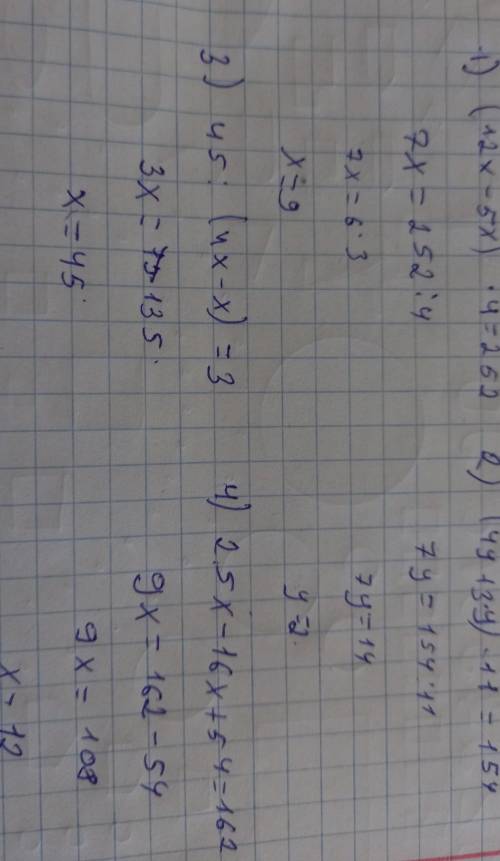 1) (12x-5x)·4=262
7x=252:4
7x=6·3
x=9
2) (4y+3y)·11=154
7y=154:11
7y=14
y=2.
3) 45:(4x-x)=3
3x=135.
x=45.
4) 25x-16x+54=162
9x=162-54
9x=108
x=12